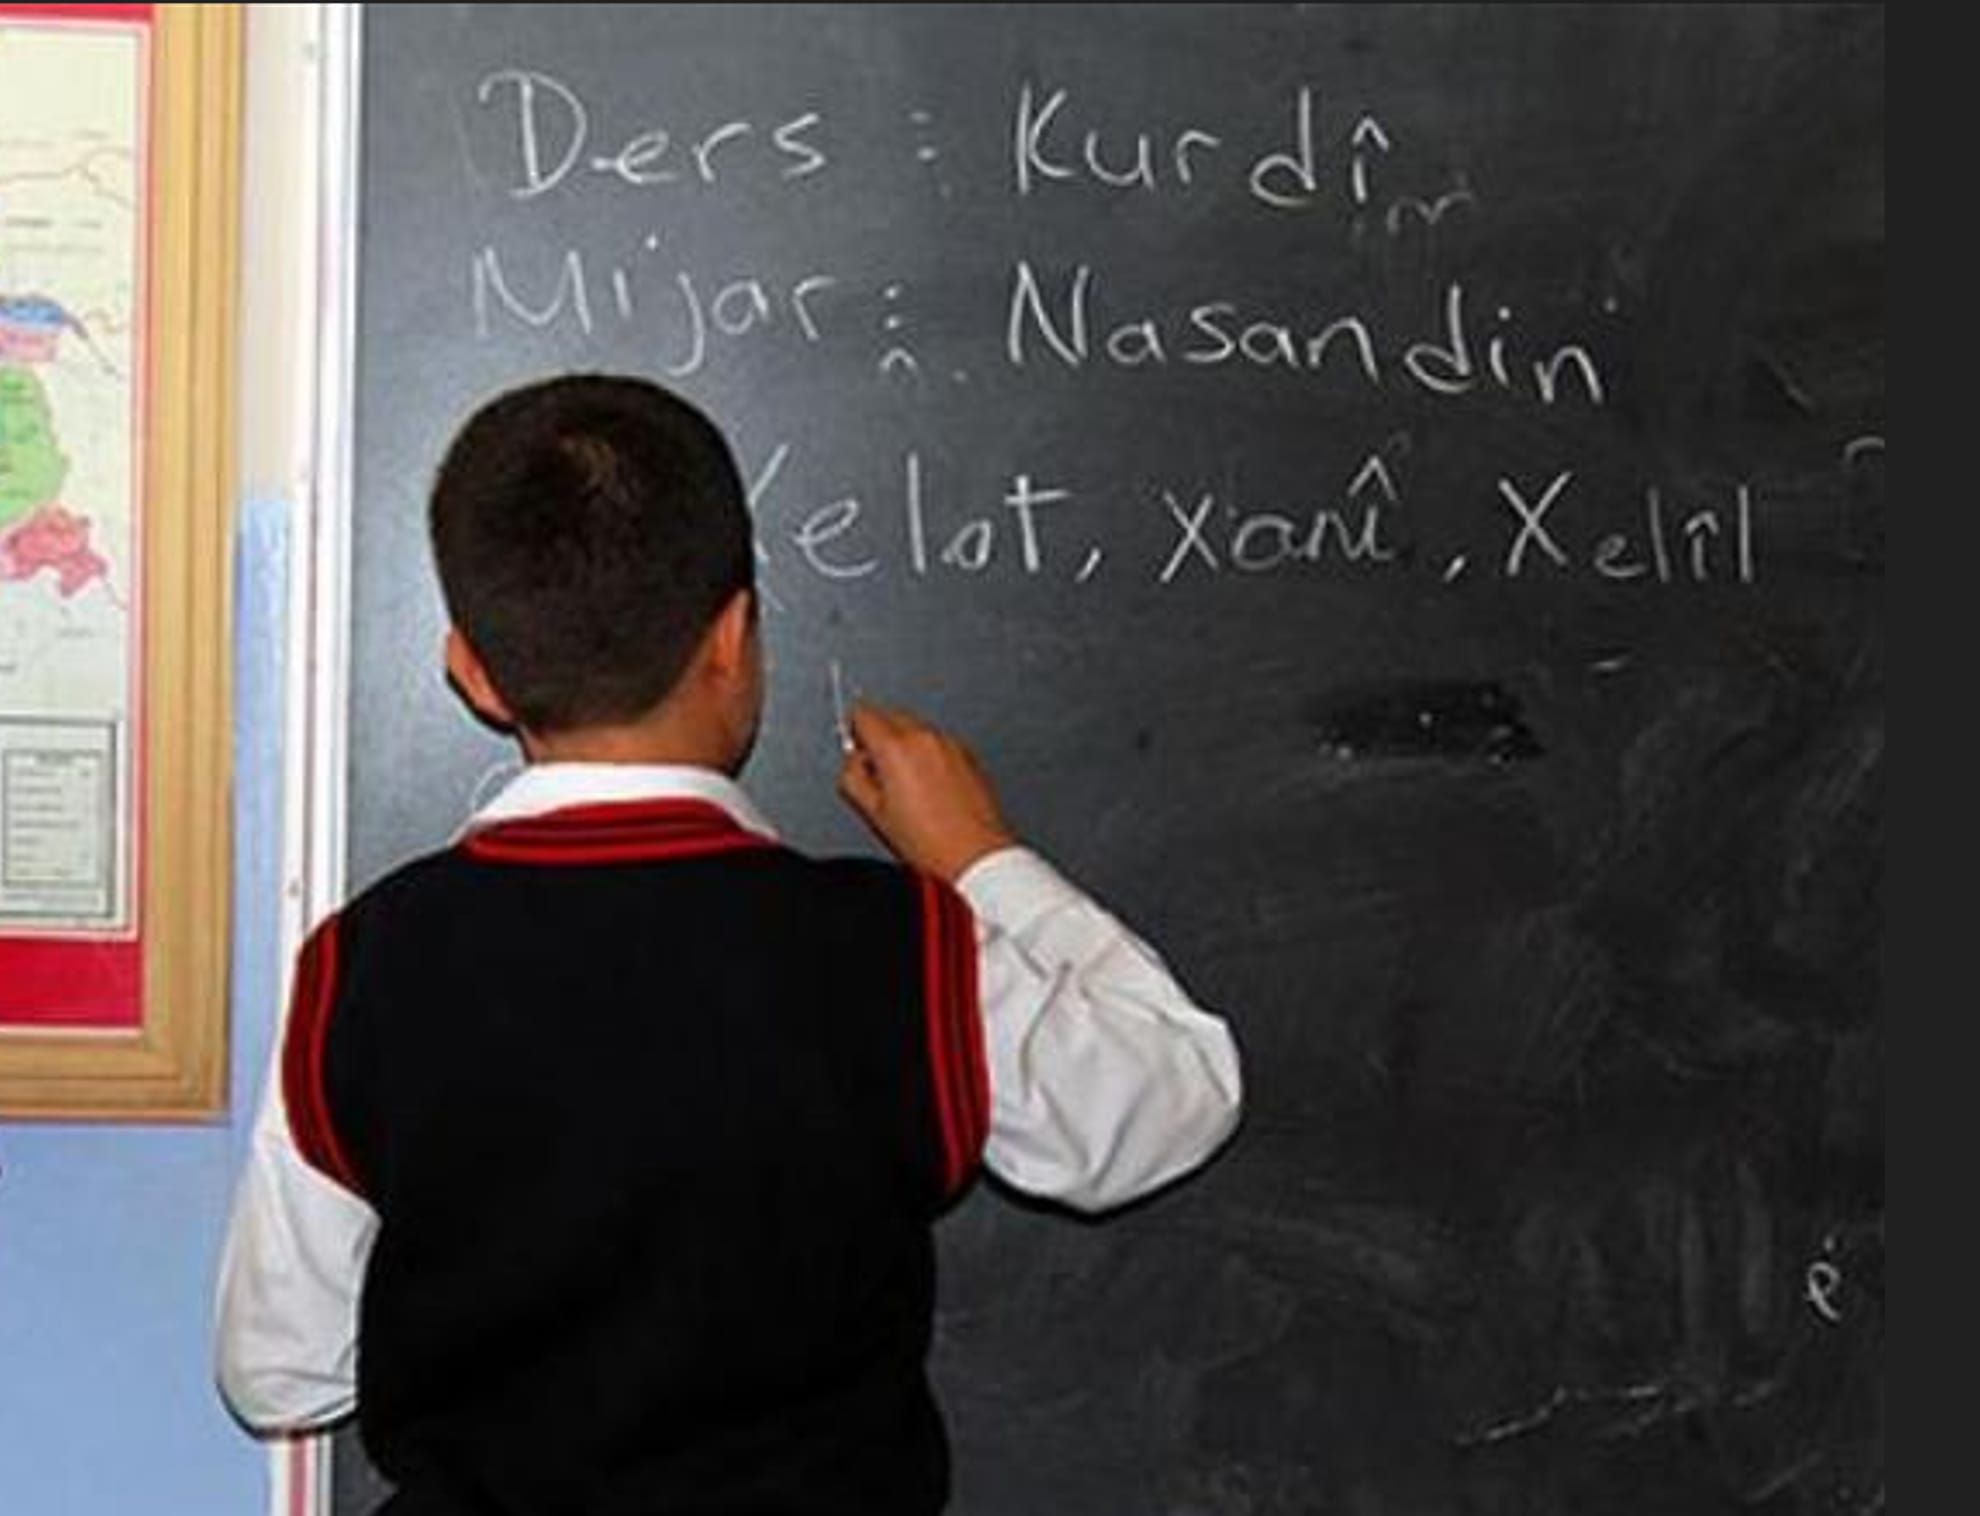 Ders : Kurdî
Mijar : Nasandin
Xelat, Xanî, Xelîl
ê